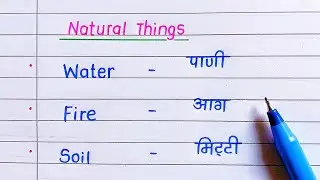 Natural Things
Water - पाणी
Fire - आग
Soil - मिट्टी